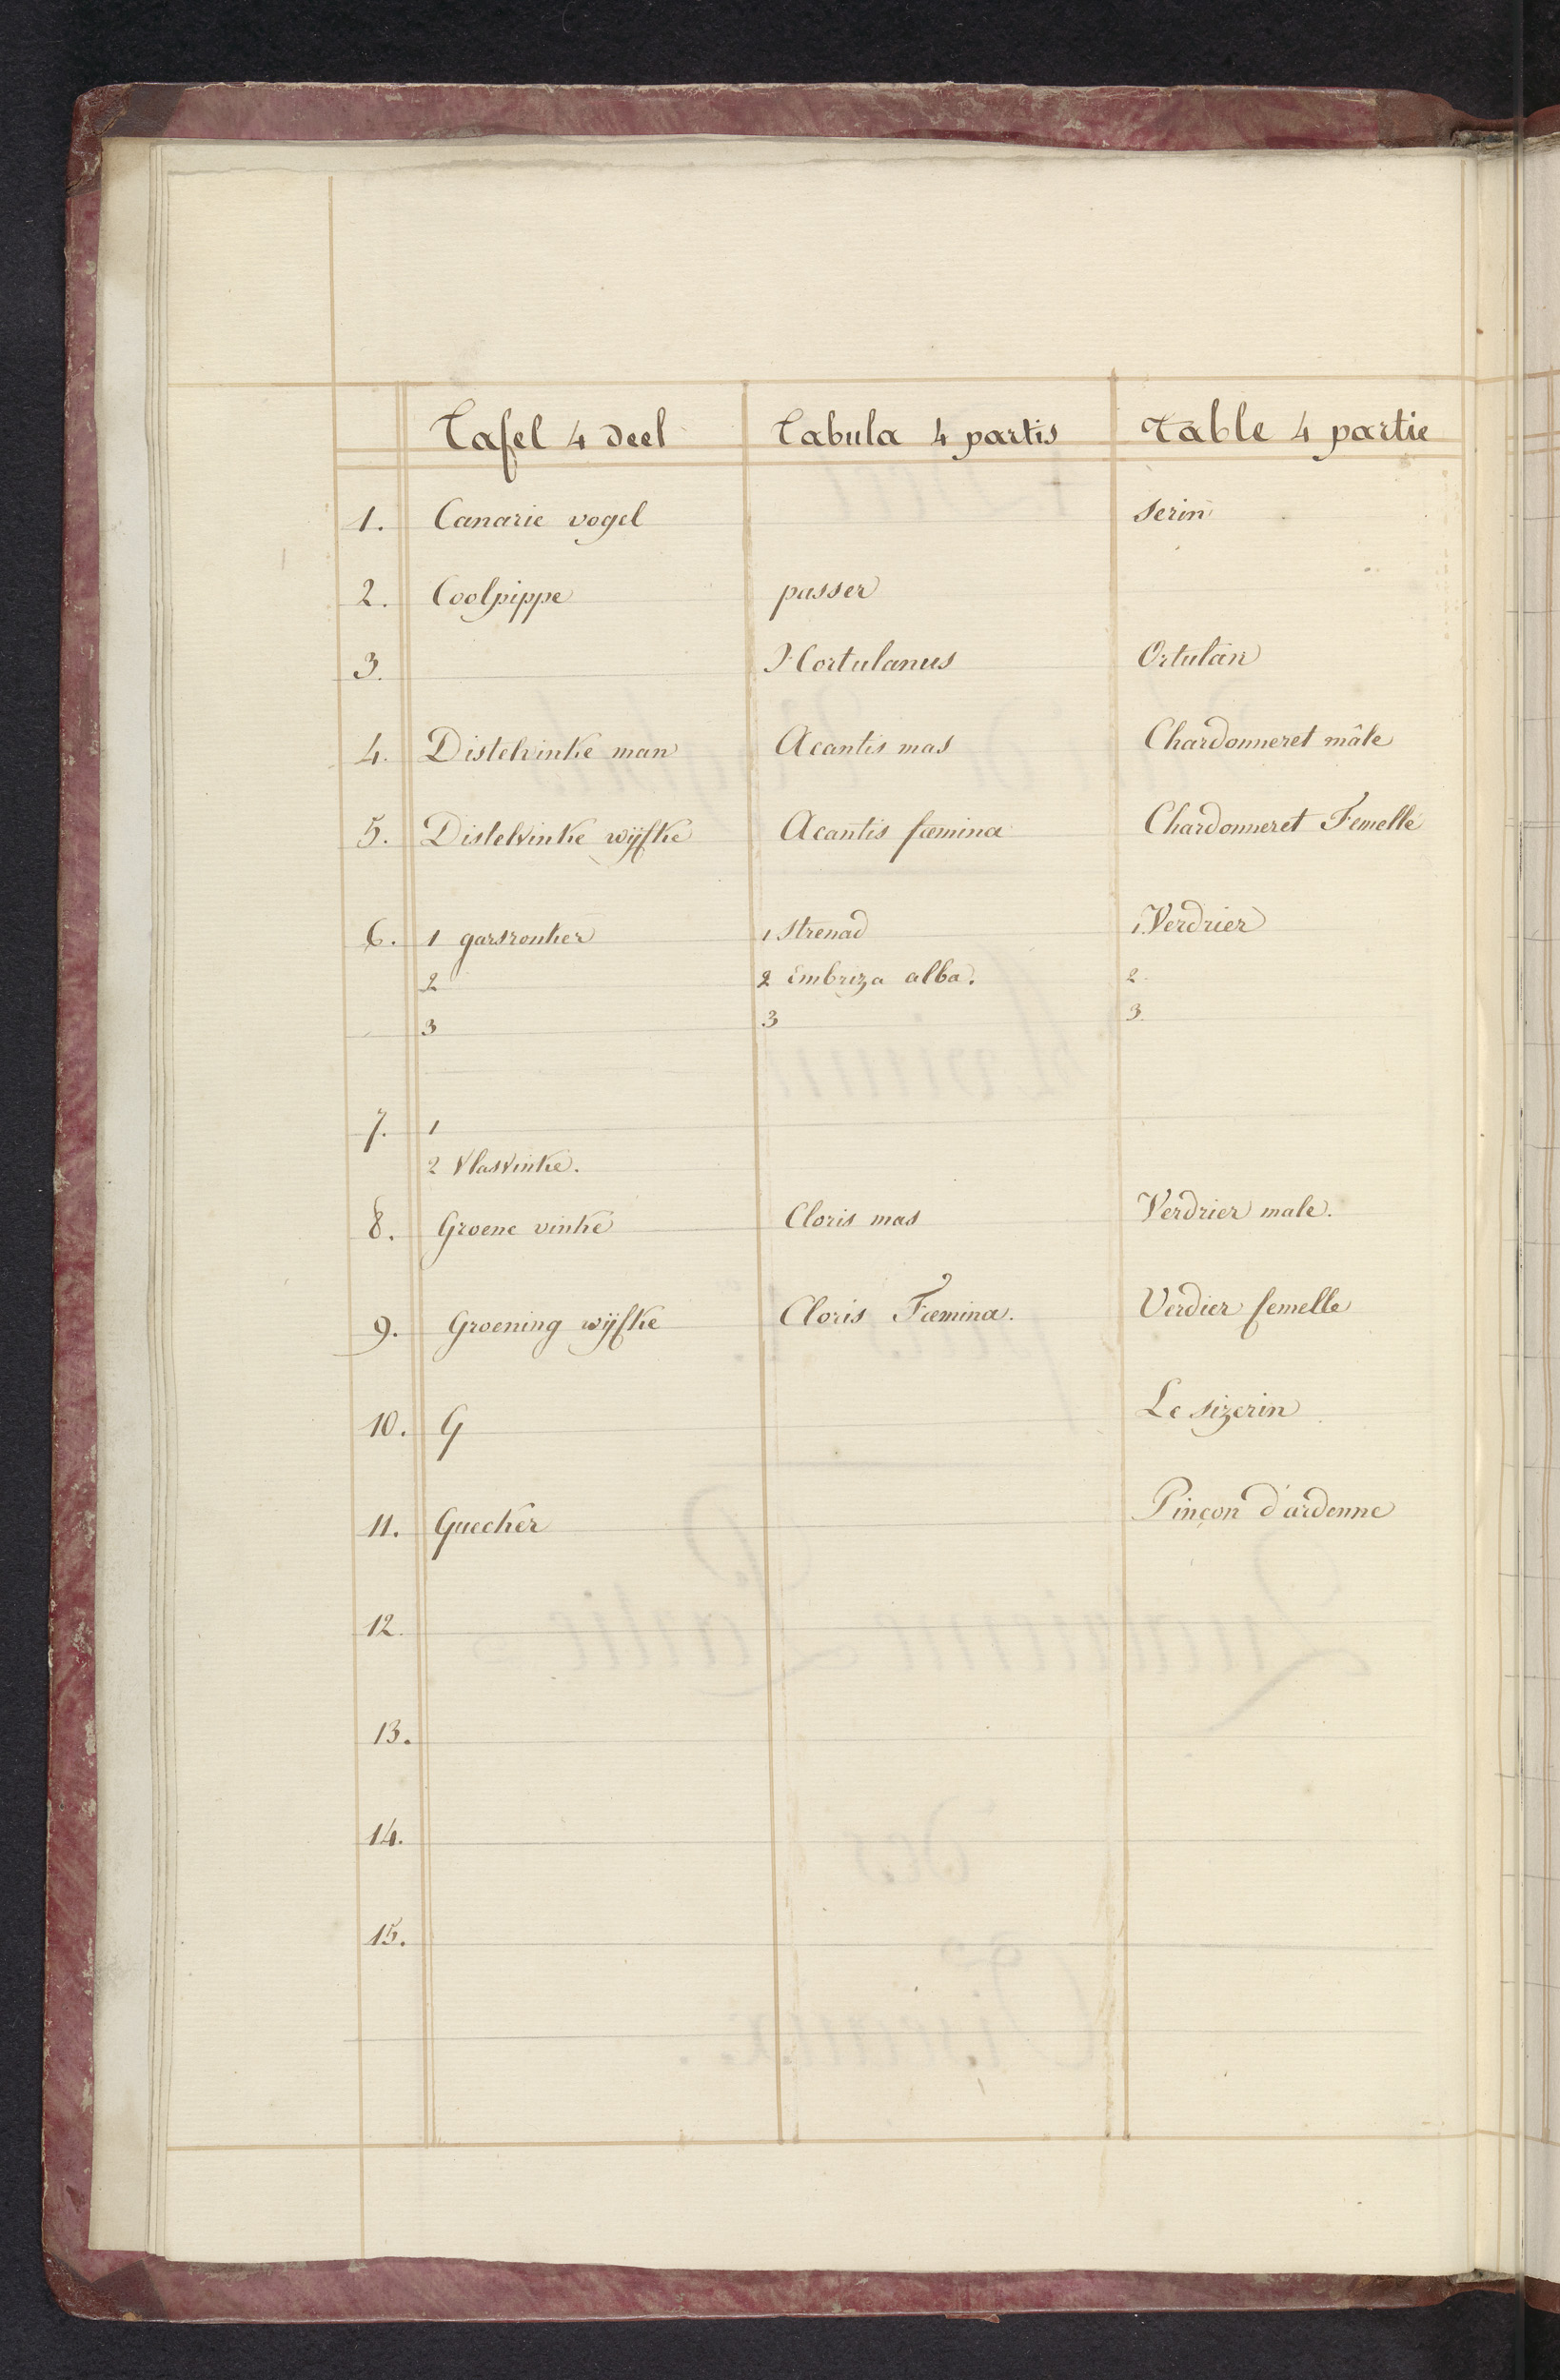 Tafel 4 deel Tabula 4 partis Table 4 partie
1. Canarie vogel serin
2. Coolpippe passer
3. Hortulanus Ortulan
4. Distelvinke man Acantis mas Chardonneret mâle
5. Distelvinke wijfke Acantis fœmina Chardonneret Femelle
6. 1 garsronker 1 strenad 1. Verdrier
2 2 Embriza alba. 2
3 3 3
7. 1
2 Vlasvinke.
8. Groene vinke Cloris mas Verdrier male.
9. Groening wijfke Cloris Fœmina. Verdier femelle
10. G Le sizerin
11. Guecker Pinçon d'ardenne
12.
13.
14.
15.